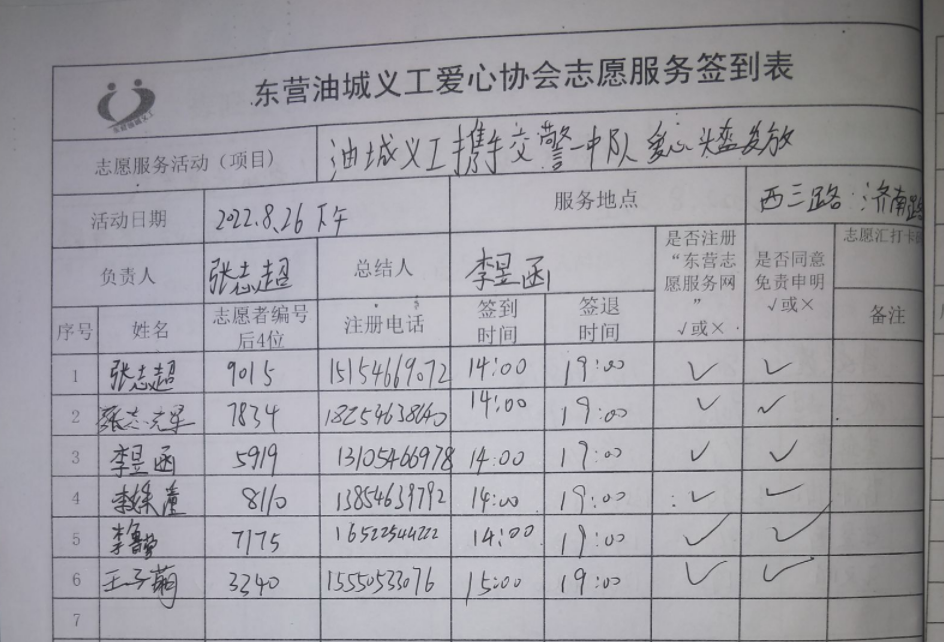 东营油城义工爱心协会志愿服务签到表
东营油城义工
志愿服务活动（项目） 油城义工携手交警一中队爱心头盔发放
活动日期 2022.8.26下午 服务地点 西三路:济南路
负责人 张志超 总结人 李昱函 是否注册“东营志愿服务网” √或× 是否同意免责申明 √或× 志愿汇打卡
序号 姓名 志愿者编号后4位 注册电话 签到时间 签退时间 备注
1 张志超 9015 15154669072 14:00 19:00 √ √
2 7834 18254638640 14:00 19:00 √ √
3 李昱函 5919 13105466978 14:00 19:00 √ √
4 8110 13854639792 14:00 19:00 √ √
5 7175 16522544222 14:00 19:00 √ √
6 王子萌 3340 15550533076 15:00 19:00 √ √
7